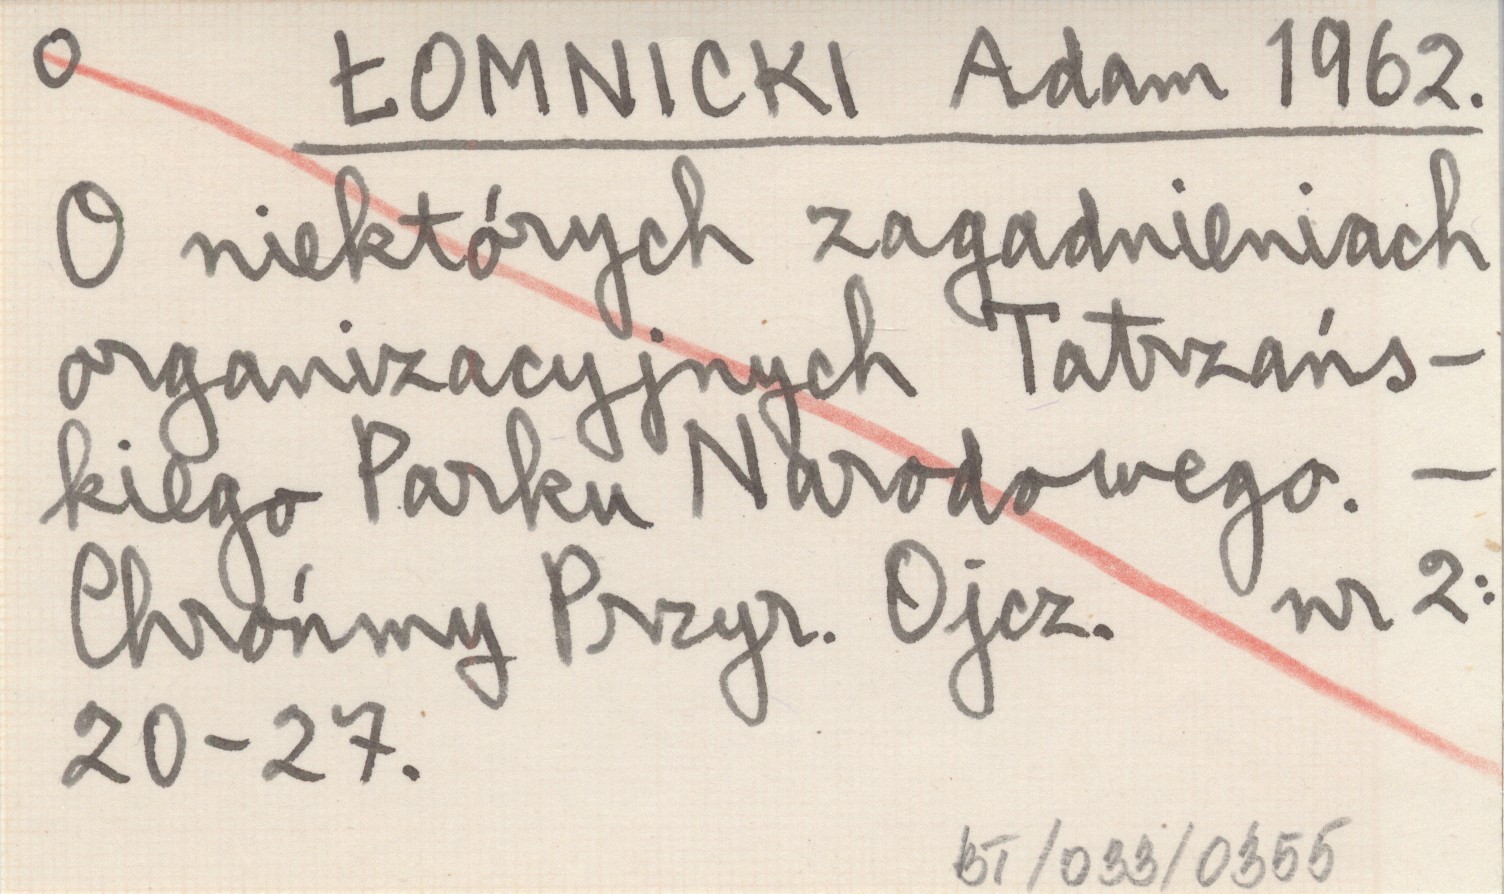 O ŁOMNICKI Adam 1962.
O niektórych zagadnieniach
organizacyjnych Tatrzańs-
kiego Parku Narodowego. —
Chrońmy Przyr. Ojcz. nr 2:
20-27.
BT/033/0355